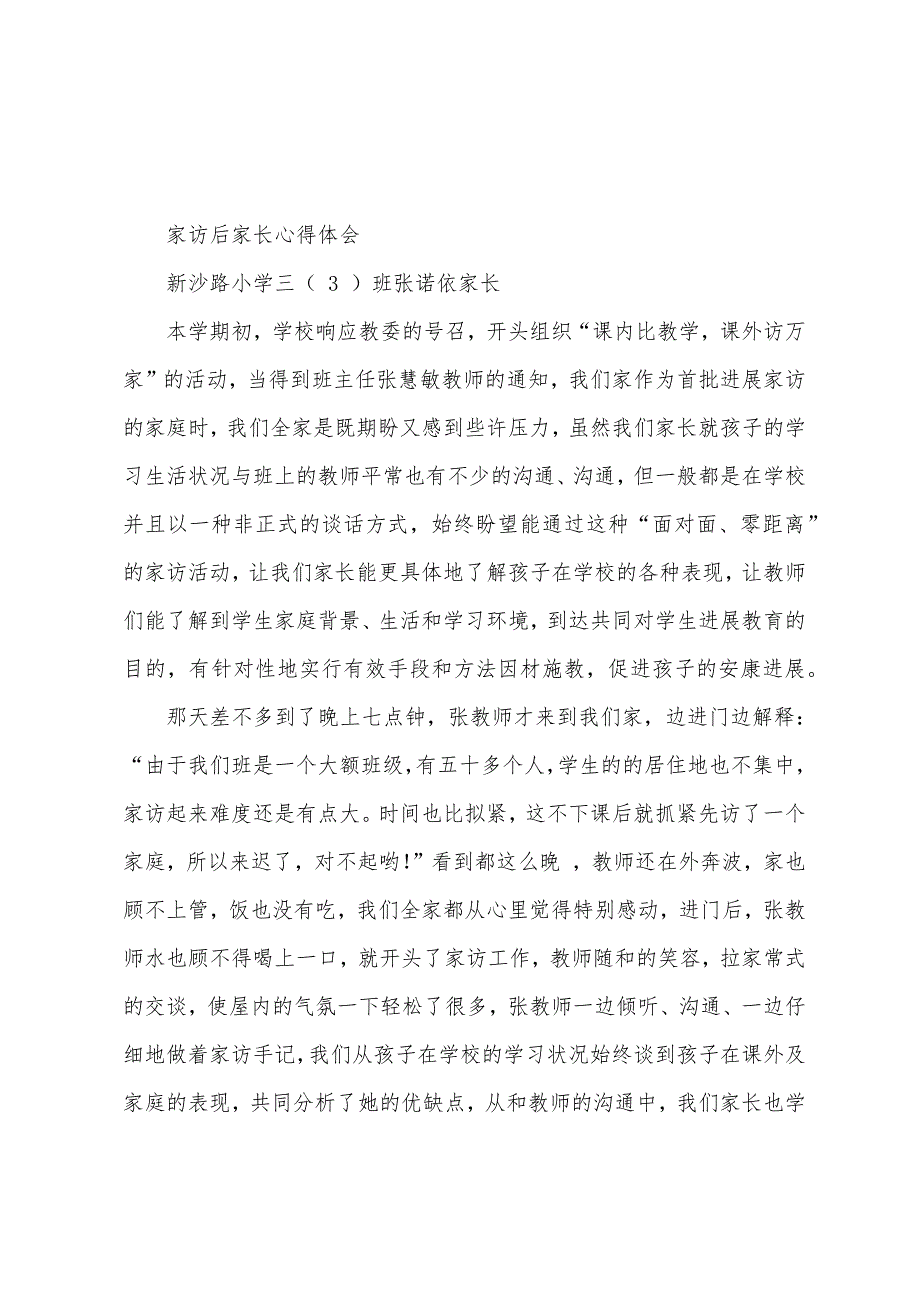 家访后家长心得体会
新沙路小学三（ 3 ）班张诺依家长
本学期初，学校响应教委的号召，开头组织“课内比教学，课外访万
家”的活动，当得到班主任张慧敏教师的通知，我们家作为首批进展家访
的家庭时，我们全家是既期盼又感到些许压力，虽然我们家长就孩子的学
习生活状况与班上的教师平常也有不少的沟通、沟通，但一般都是在学校
并且以一种非正式的谈话方式，始终盼望能通过这种“面对面、零距离”
的家访活动，让我们家长能更具体地了解孩子在学校的各种表现，让教师
们能了解到学生家庭背景、生活和学习环境，到达共同对学生进展教育的
目的，有针对性地实行有效手段和方法因材施教，促进孩子的安康进展。
那天差不多到了晚上七点钟，张教师才来到我们家，边进门边解释：
“由于我们班是一个大额班级，有五十多个人，学生的的居住地也不集中，
家访起来难度还是有点大。时间也比拟紧，这不下课后就抓紧先访了一个
家庭，所以来迟了，对不起哟！”看到都这么晚 ，教师还在外奔波，家也
顾不上管，饭也没有吃，我们全家都从心里觉得特别感动，进门后，张教
师水也顾不得喝上一口，就开头了家访工作，教师随和的笑容，拉家常式
的交谈，使屋内的气氛一下轻松了很多，张教师一边倾听、沟通、一边仔
细地做着家访手记，我们从孩子在学校的学习状况始终谈到孩子在课外及
家庭的表现，共同分析了她的优缺点，从和教师的沟通中，我们家长也学